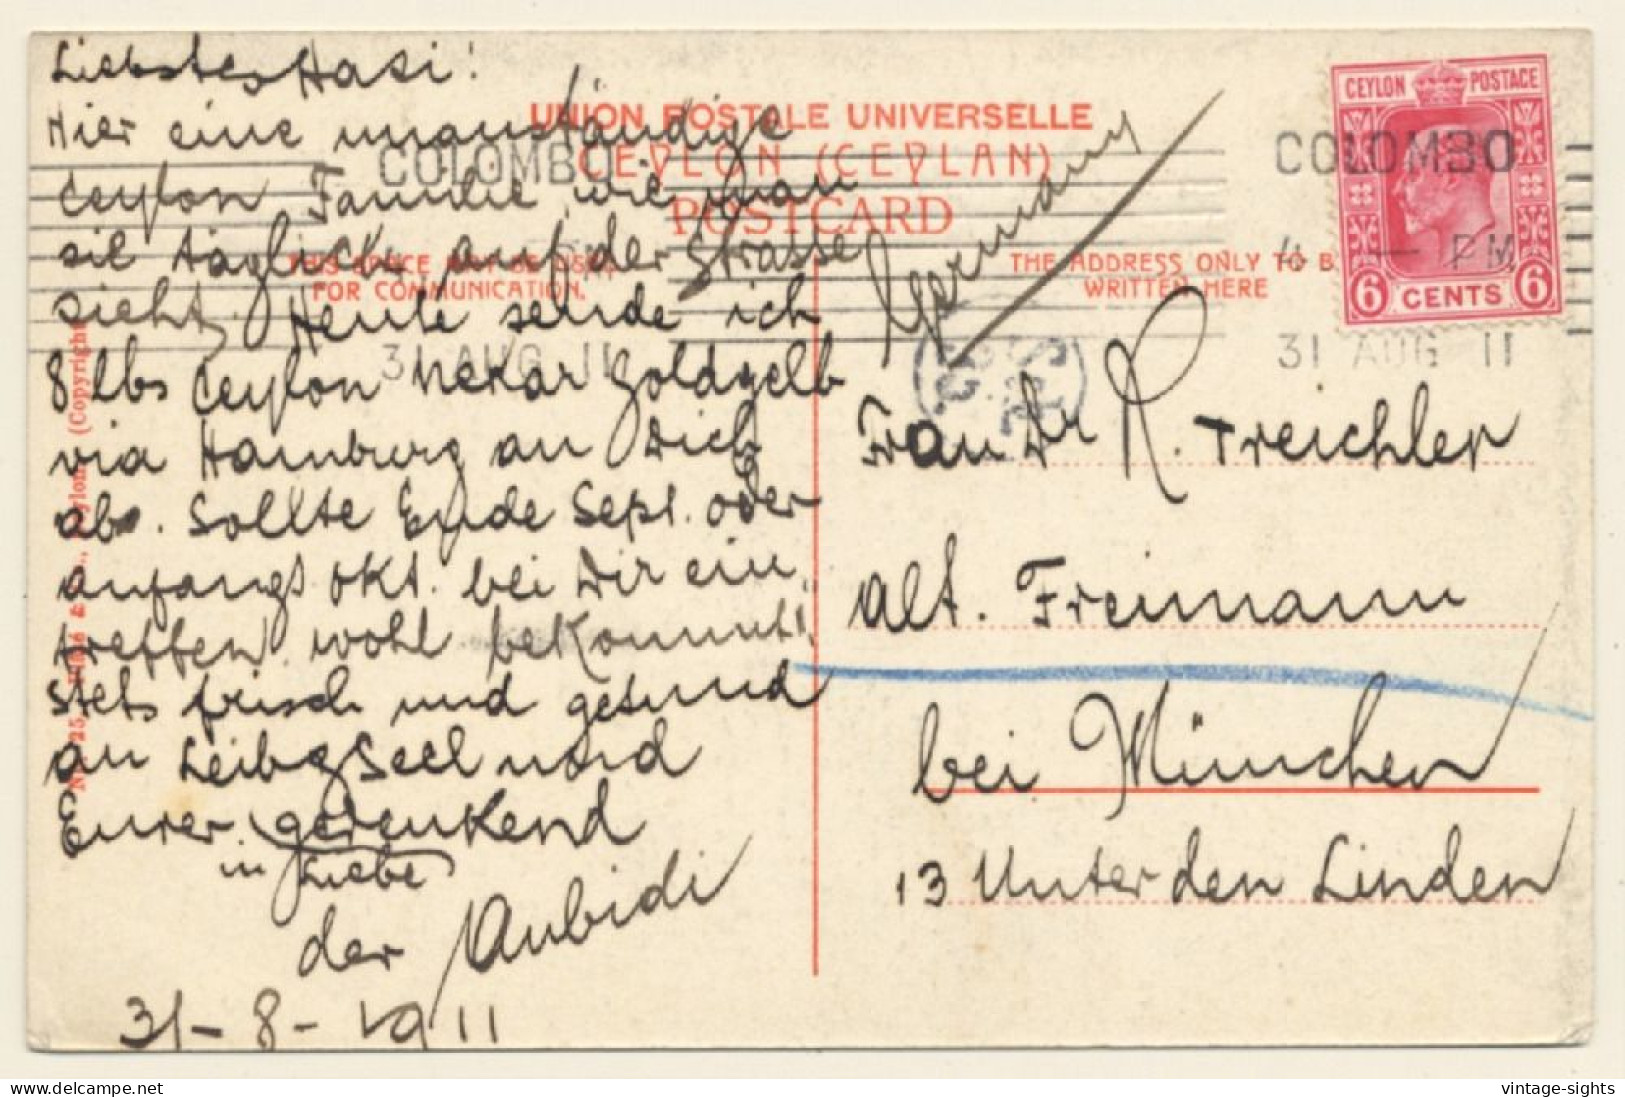 Liebstes Hasi!
Hier eine unanständige
Ceylon Familie, wie man
sie täglich auf der Strasse
sieht. Heute sende ich
8 lbs Ceylon Nektar Goldgelb
via Hamburg an Dich
ab. Sollte Ende Sept. oder
anfangs Okt. bei Dir ein
treffen. wohl bekomm's!
stets frisch und gesund
an Leib & Seel und
Eurer gedenkend
in Liebe
der
31-8-1911
UNION POSTALE UNIVERSELLE
CEYLON (CEYLAN)
POSTCARD
THIS SPACE MAY BE USED
FOR COMMUNICATION.
THE ADDRESS ONLY TO B
WRITTEN HERE
(Copyright
COLOMBO
31 AUG 11
CEYLON POSTAGE
6 CENTS 6
COLOMBO
4 — PM
31 AUG 11
Germany
Frau Dr R. Treichler
Alt. Freimann
bei München
13 Unter den Linden
vintage-sights